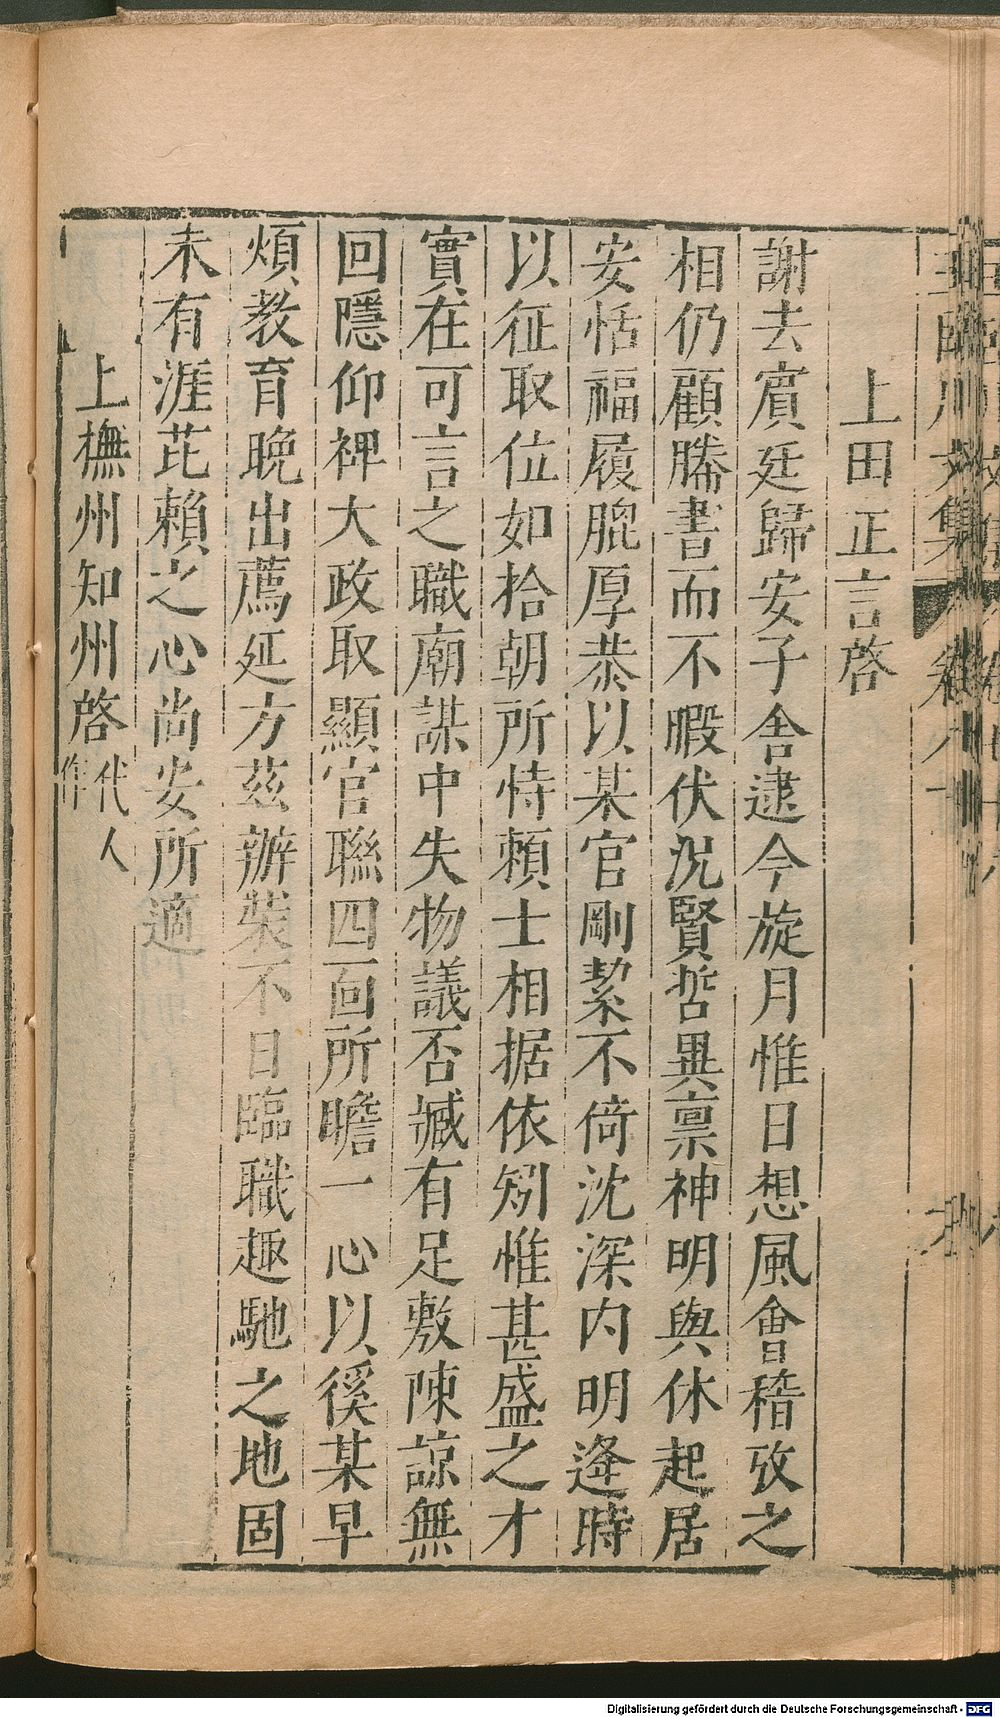 上田正言啓
謝去賓廷歸安子舎逮今旋月惟日想風會稽攷之
相仍顧牋書而不暇伏況賢哲異禀神明與休起居
安恬福履膍厚恭以某官剛絜不倚沈深内明逢時
以征取位如拾朝所恃賴士相据依矧惟甚盛之才
實在可言之職廟謀中失物議否臧有足敷陳諒無
回隱仰禆大政取顯官聮四面所瞻一心以徯某早
煩教育晚出薦延方茲辦裝不日臨職趣馳之地固
未有涯芘賴之心尚安所適
上撫州知州啓代人作
Digitalisierung gefördert durch die Deutsche Forschungsgemeinschaft - DFG